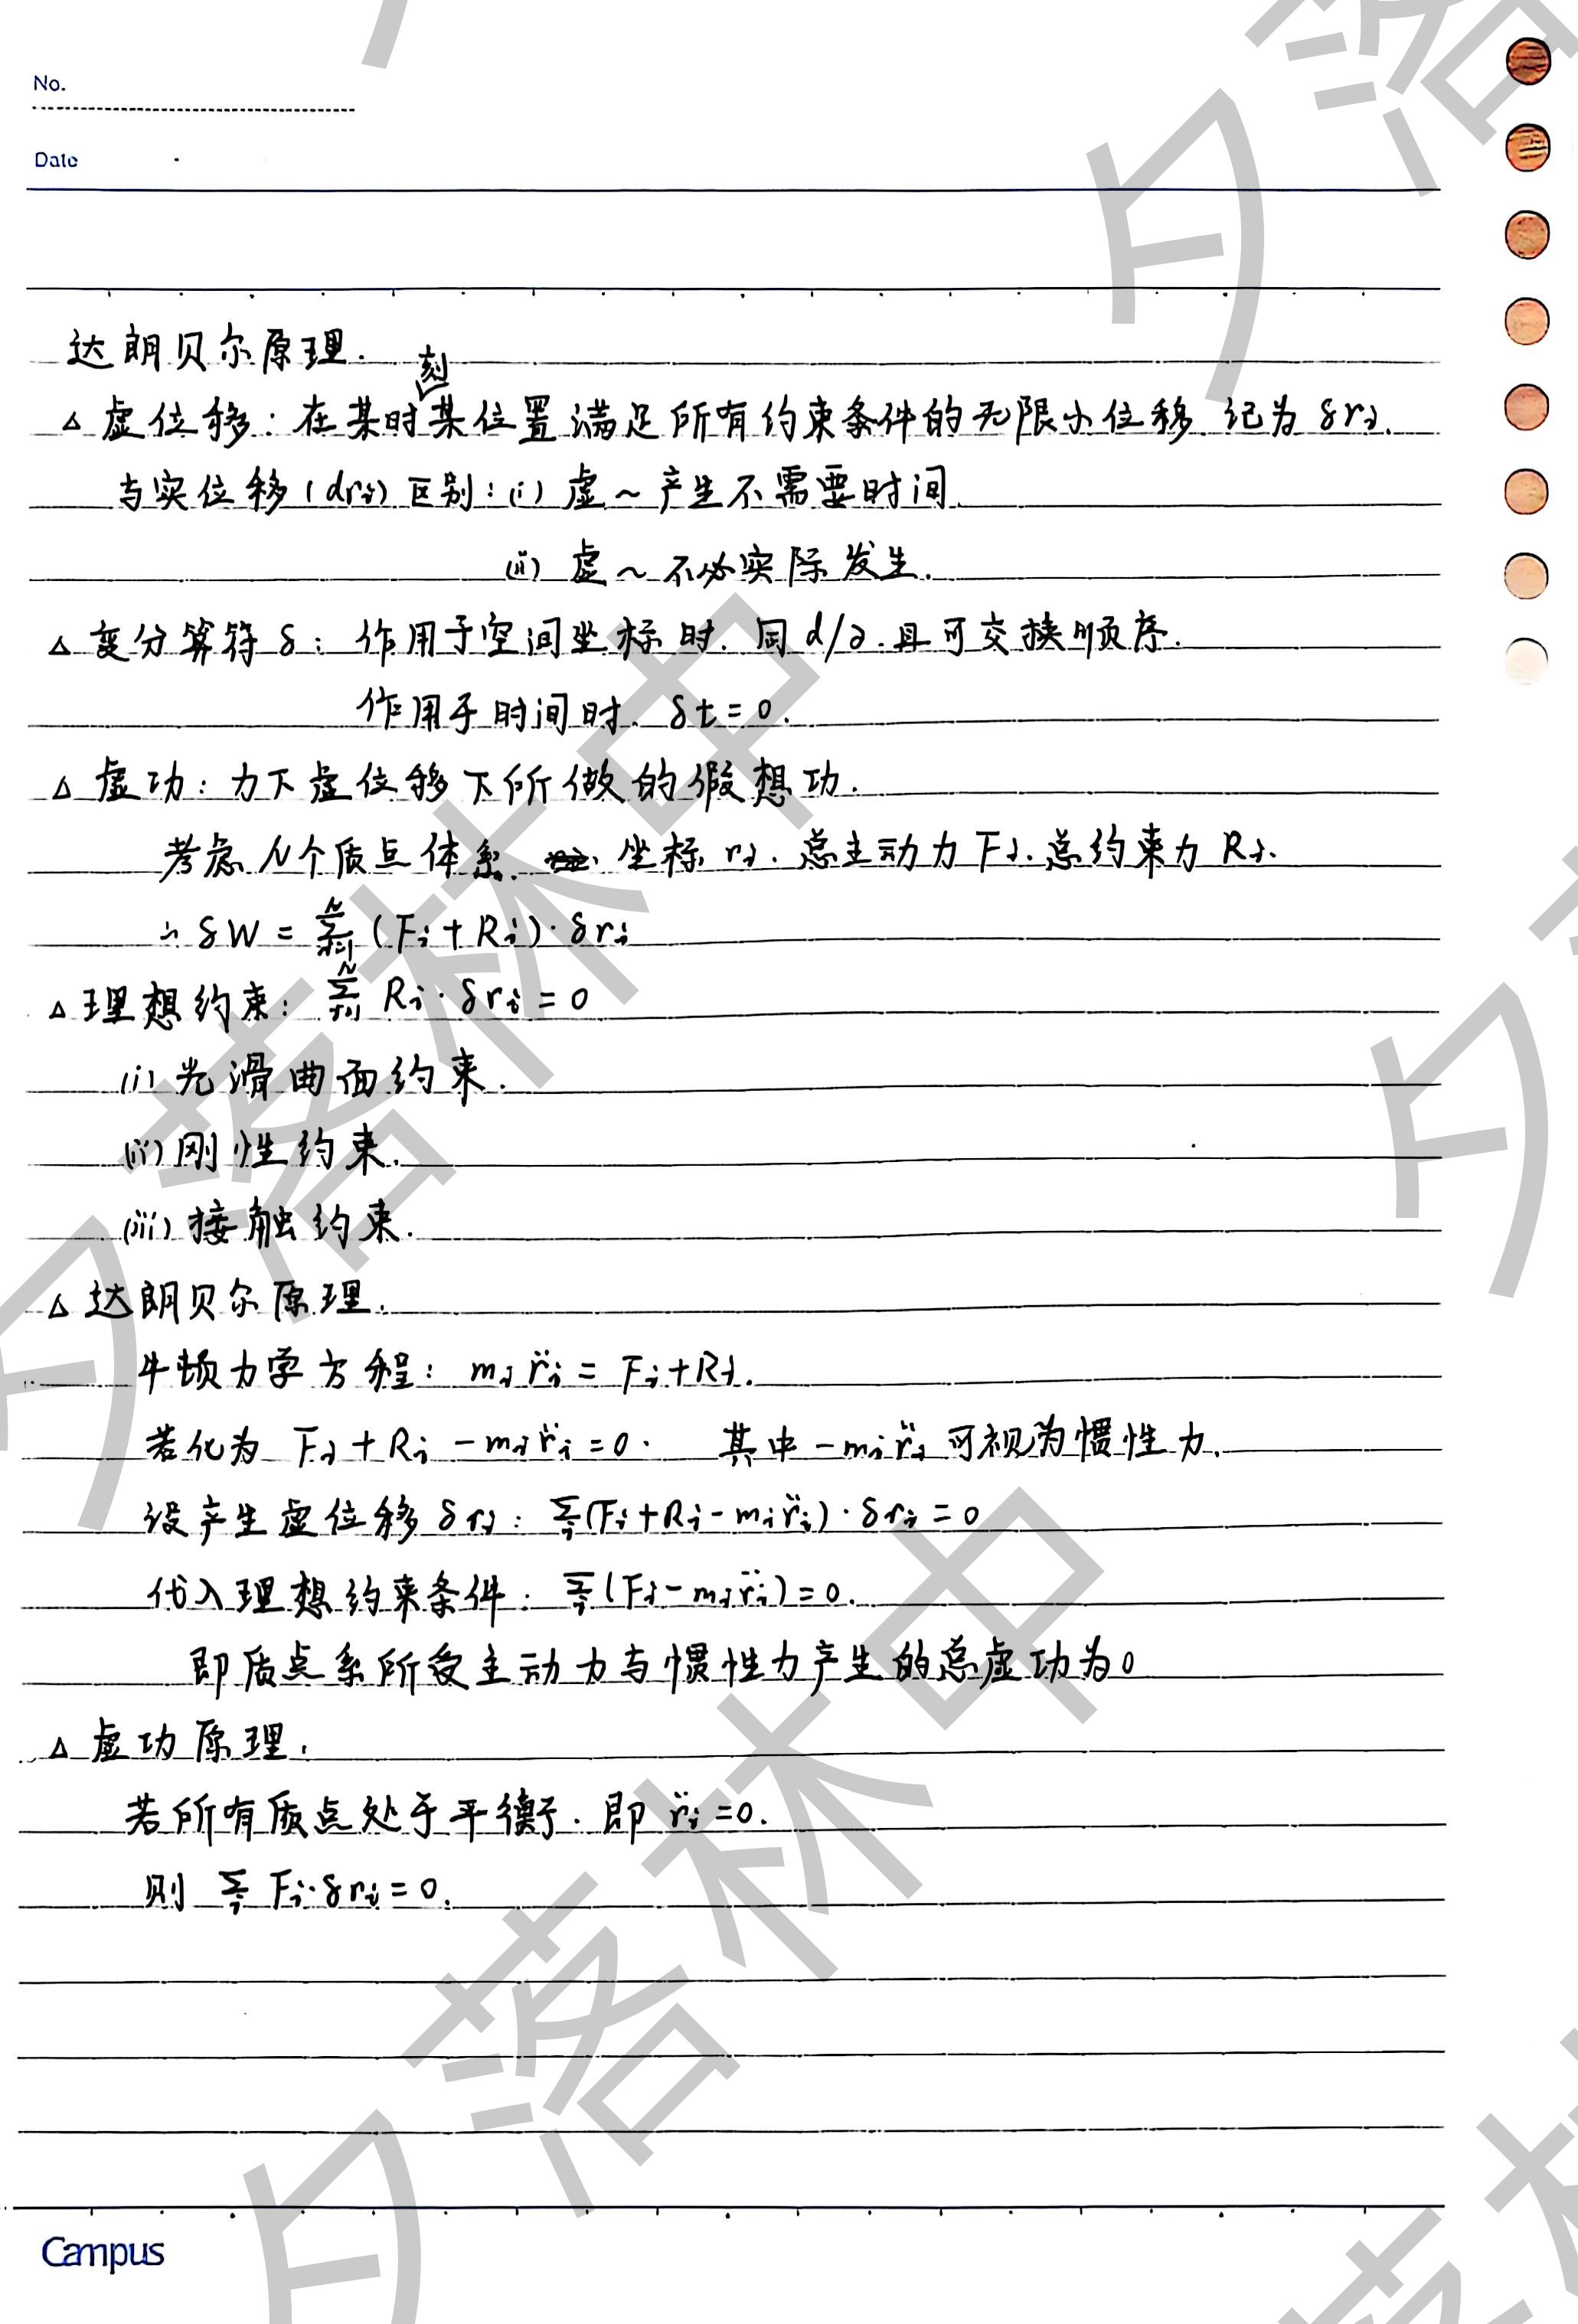 No.
Date
达朗贝尔原理.
△ 虚位移：在某时刻某位置满足所有约束条件的无限小位移. 记为 δri.
与实位移(dri)区别：(i) 虚～产生不需要时间.
(ii) 虚～不必实际发生.
△ 变分算符δ：作用于空间坐标时. 同 d/∂. 且可交换顺序.
作用于时间时. δt=0.
△ 虚功：力下虚位移下所做的假想功.
考虑N个质点体系. 坐标 ri. 总主动力 Fi. 总约束力 Ri.
∴ δW = Σ_{i=1}^{N} (Fi+Ri)·δri
△ 理想约束：Σ_{i=1}^{N} Ri·δri = 0
(i) 光滑曲面约束.
(ii) 刚性约束.
(iii) 接触约束.
△ 达朗贝尔原理.
牛顿力学方程：mi r̈i = Fi+Ri.
若化为 Fi+Ri－mi r̈i=0. 其中－mi r̈i 可视为惯性力.
设产生虚位移 δri：Σ_i (Fi+Ri－mi r̈i)·δri = 0
代入理想约束条件：Σ_i (Fi－mi r̈i)=0.
即质点系所受主动力与惯性力产生的总虚功为0
△ 虚功原理.
若所有质点处于平衡. 即 r̈i=0.
则 Σ_i Fi·δri = 0.
Campus
夕落林中
夕落林中